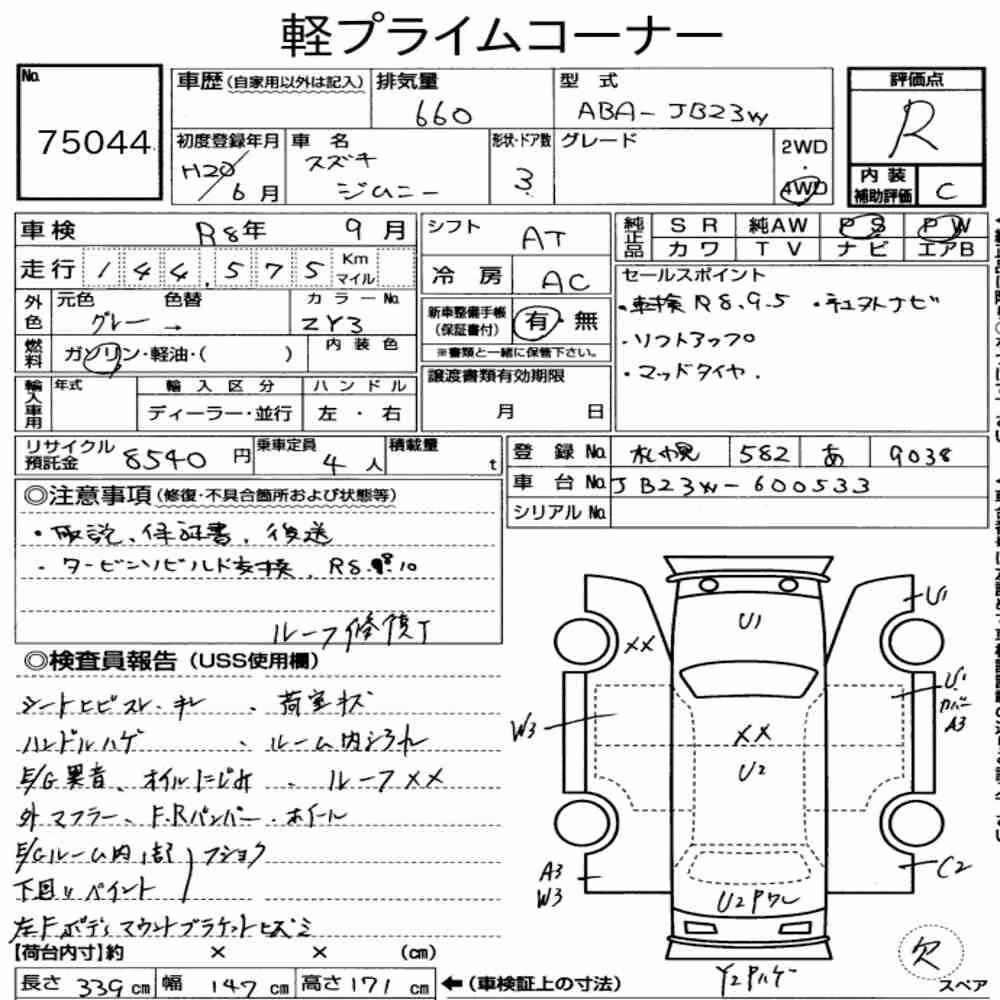 軽プライムコーナー
No.
75044
車歴(自家用以外は記入)
排気量
660
型 式
ABA-JB23W
初度登録年月
H20/6月
車 名
スズキ
ジムニー
形状・ドア数
3
グレード
2WD
・
4WD
評価点
R
内 装
補助評価
C
車検 R8年 9月
走行 144,575 Km マイル
外色 元色 グレー → 色替
カラーNo. ZY3
燃料 ガソリン・軽油・( )
内装色
輸入車用 年式
輸入区分
ディーラー・並行
ハンドル
左・右
シフト AT
冷房 AC
新車整備手帳
(保証書付)
有・無
※書類と一緒に保管下さい。
譲渡書類有効期限
月 日
純正品 SR 純AW PS PW
カワ TV ナビ エアB
セールスポイント
・車検R8.9.5 ・テュストナビ
・リフトアップ
・マッドタイヤ.
リサイクル預託金 8540円
乗車定員 4人
積載量 t
登録No. 札幌 582 あ 9038
車台No. JB23W-600533
シリアルNo.
◎注意事項(修復・不具合箇所および状態等)
・取説、保証書、後送
・タービンリビルド交換、R8.10
ルーフ修復丁
◎検査員報告(USS使用欄)
シートヒビスレ・キレ 、荷室状
ハンドルハゲ 、ルーム内ヨゴレ
E/G異音、オイルにじみ 、ルーフXX
外マフラー、F.Rバンパー・ホイール
E/Gルーム内1部 フショク
下回りペイント
左Fボディマウントブラケットヒズミ
【荷台内寸】約 × × (cm)
長さ 339cm 幅 147cm 高さ171cm ←(車検証上の寸法)
U1
U1
XX
W3
U1
カバー
A3
XX
U2
A3
W3
C2
U2Pワレ
Y2Pハゲ
欠
スペア